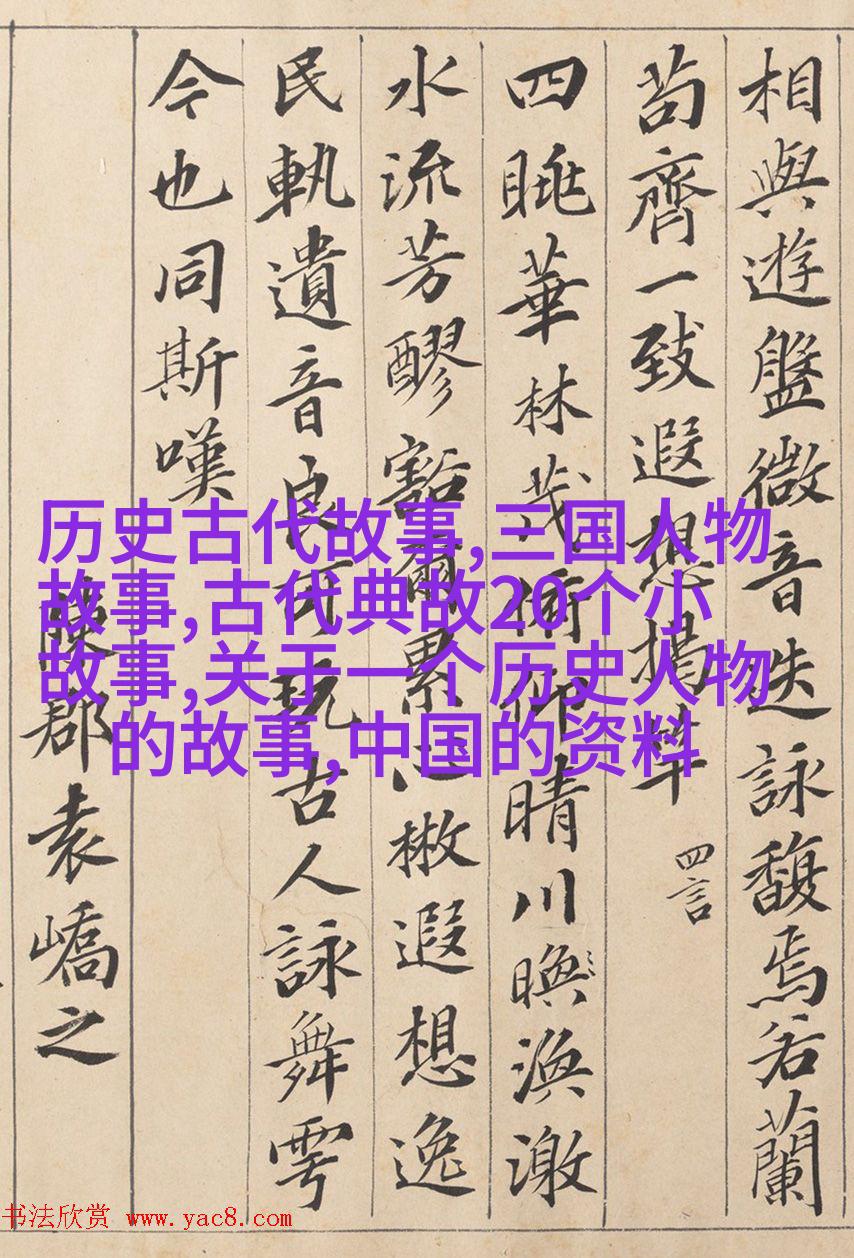 相與遊盤微音迭詠馥焉若蘭
苟齊一致遐想揭竿 四言
四眺華林茂俯仰晴川渙激
水流芳醪豁爾累心散遐想逸
民軌遺音良可玩古人詠舞雩
今也同斯嘆
陳郡袁嶠之
历史古代故事,三国人物
故事,古代典故20个小
故事,关于一个历史人物
的故事,中国的资料
书法欣赏 www.yac8.com